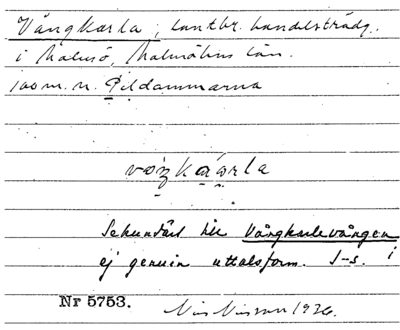 Vångkarla, lantbr. handelsträdg.
i Malmö, Malmöhus län.
100 m. n. Pildammarna
Sekundärt till Vångkarlevången
ej genuin uttalsform. I-s. i
Nr 5753. Nils Nilsson 1926.